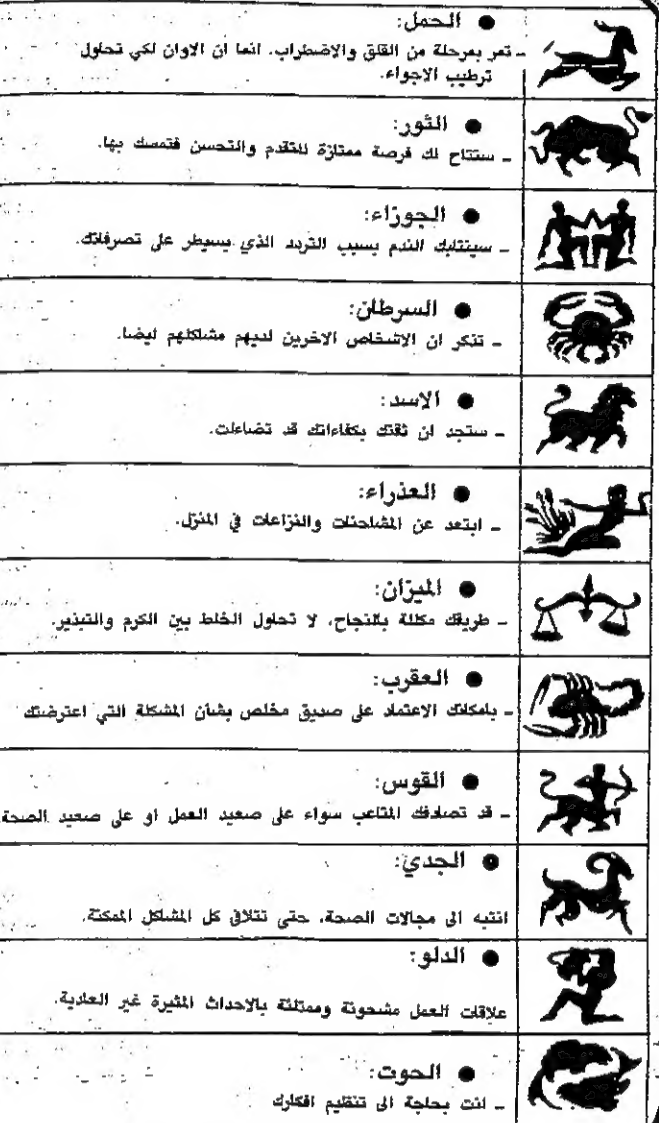 ● الحمل:
ـ تمر بمرحلة من القلق والاضطراب. انما ان الاوان لكي تحاول
ترطيب الاجواء.
● الثور:
ـ ستتاح لك فرصة ممتازة للتقدم والتحسن فتمسك بها.
● الجوزاء:
ـ سينتابك الندم بسبب التردد الذي يسيطر على تصرفاتك.
● السرطان:
ـ تذكر ان الاشخاص الاخرين لديهم مشاكلهم ايضا.
● الاسد:
ـ ستجد ان ثقتك بكفاءاتك قد تضاءلت.
● العذراء:
ـ ابتعد عن المشاحنات والنزاعات في المنزل.
● الميزان:
ـ طريقك مكللة بالنجاح، لا تحاول الخلط بين الكرم والتبذير.
● العقرب:
ـ بامكانك الاعتماد على صديق مخلص بشأن المشكلة التي اعترضتك
● القوس:
ـ قد تصادفك المتاعب سواء على صعيد العمل او على صعيد الصحة.
● الجدي:
انتبه الى مجالات الصحة، حتى تتلافى كل المشاكل الممكنة.
● الدلو:
علاقات العمل مشحونة وممتلئة بالاحداث المثيرة غير العادية.
● الحوت:
ـ انت بحاجة الى تنظيم افكارك